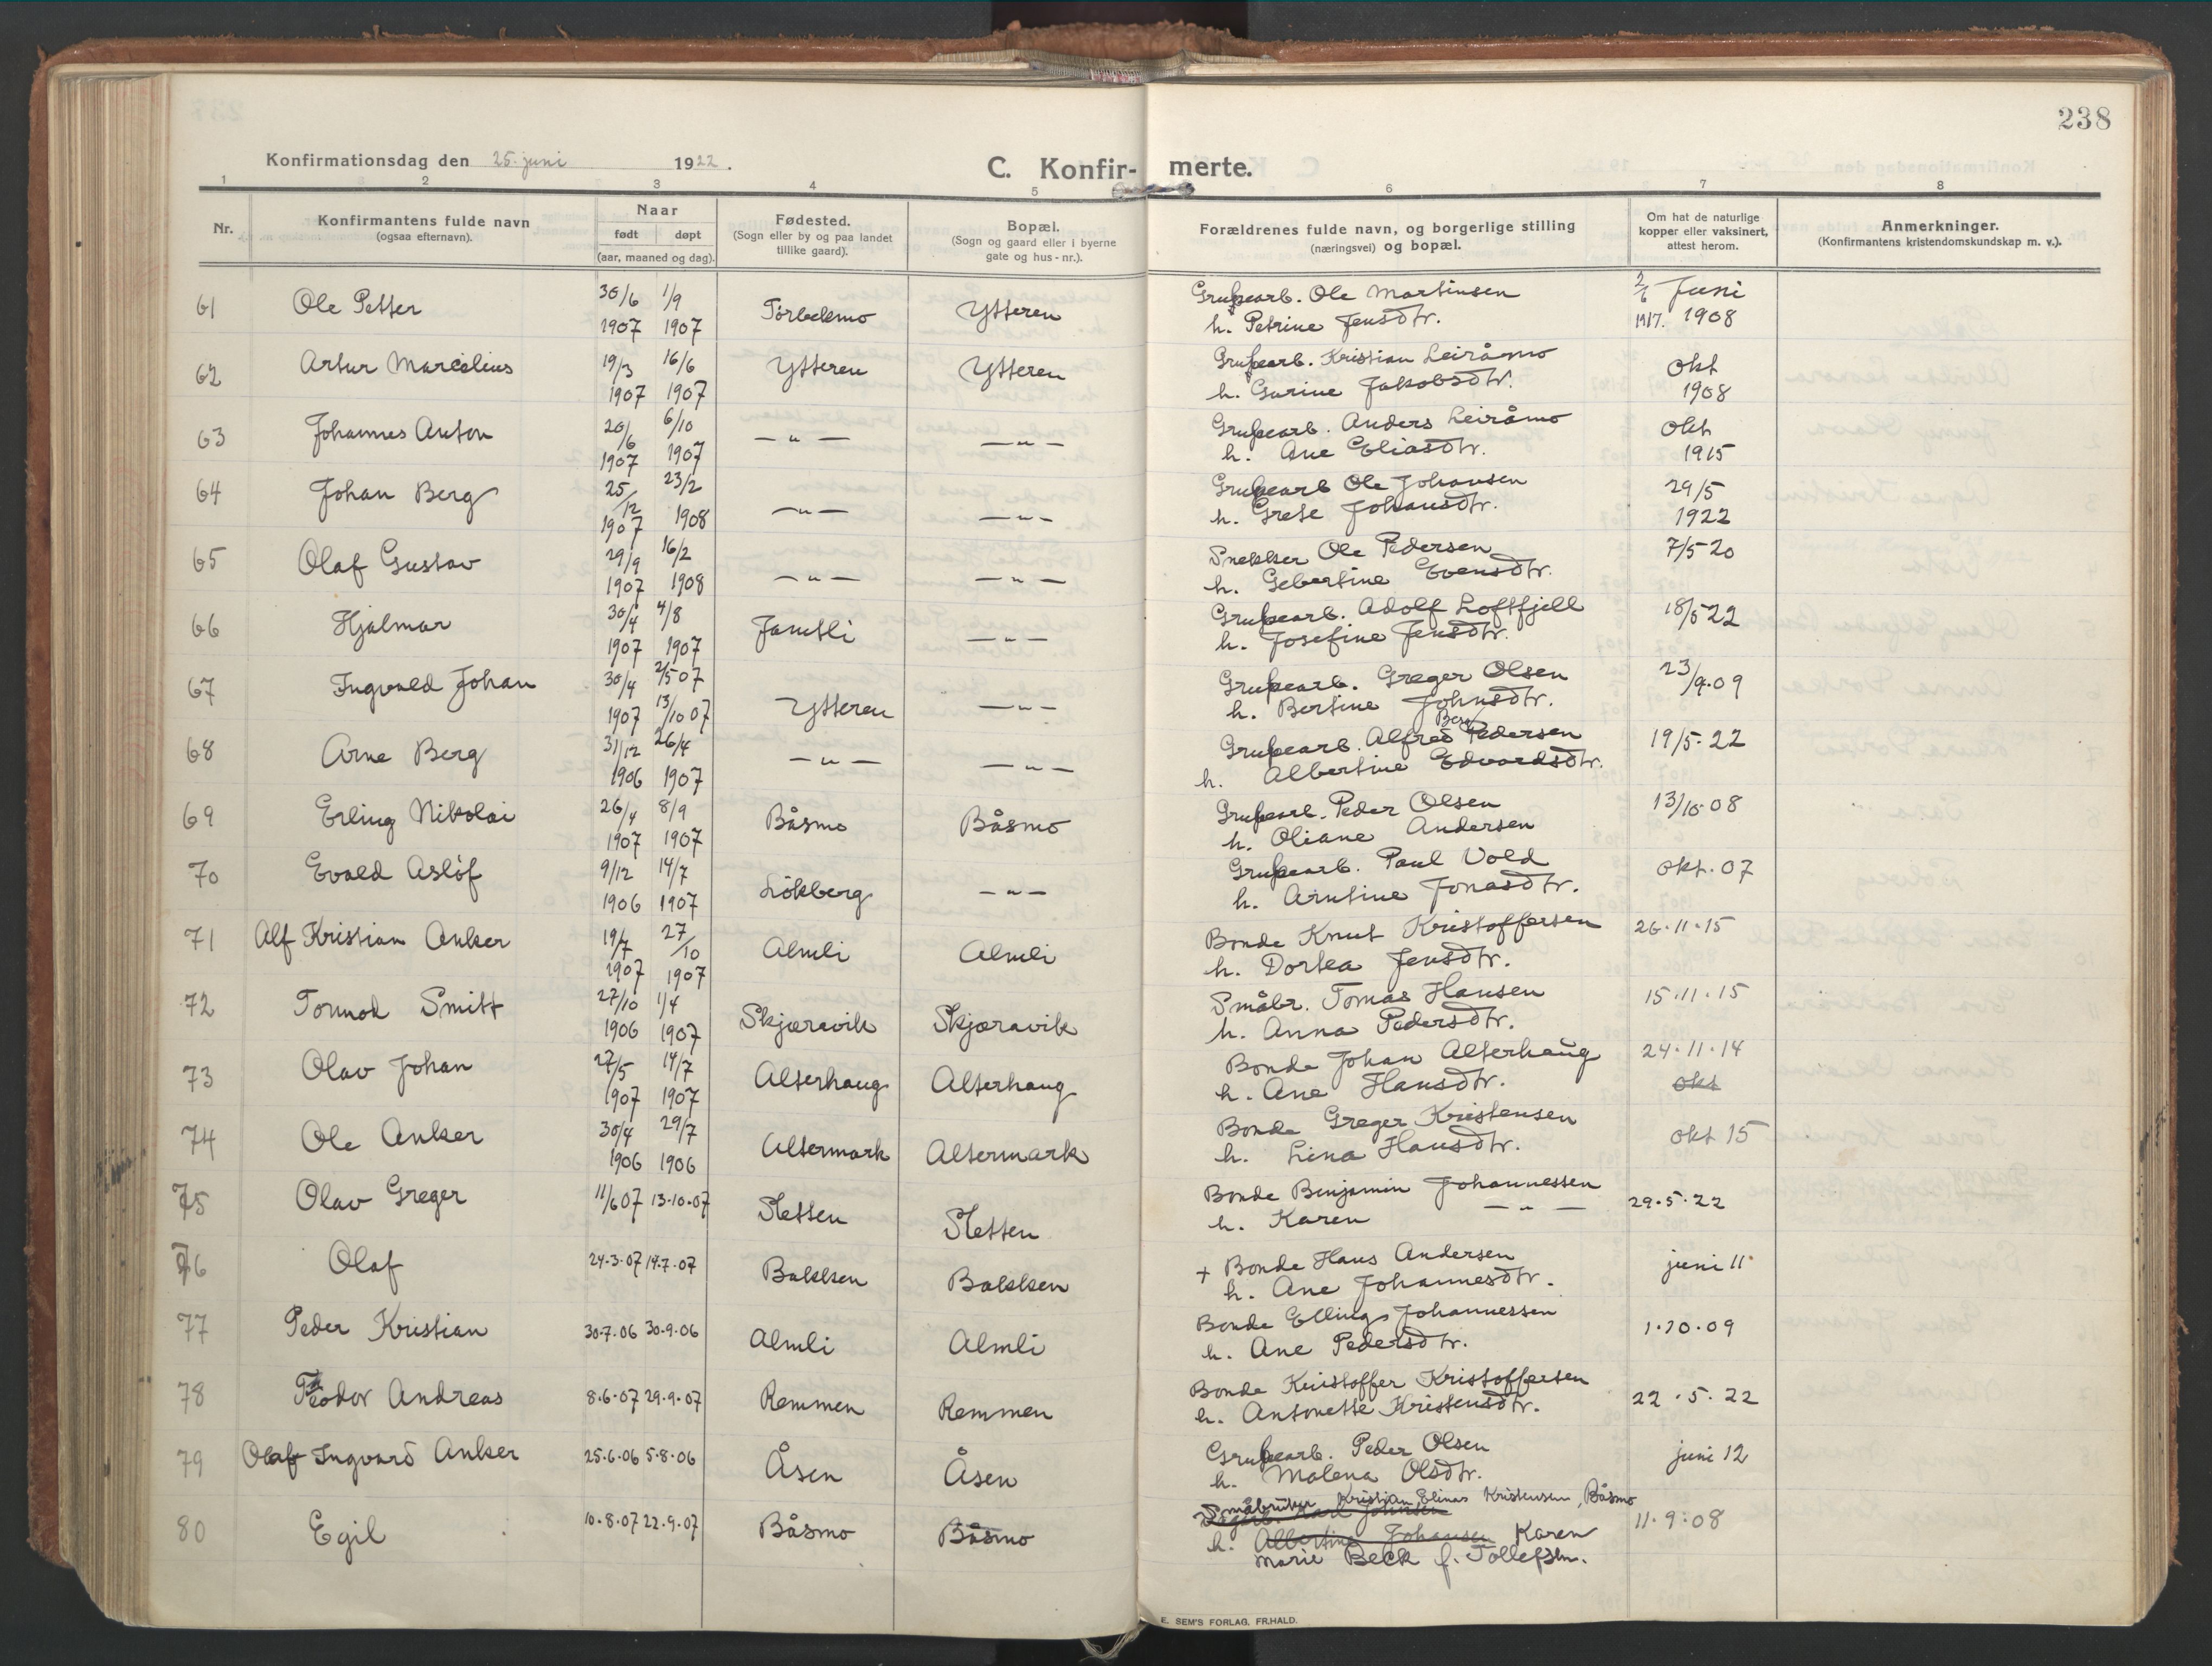 238
Konfirmationsdag den 25. juni 1922.
C. Konfir- merte.
1 2 3 4 5 6 7 8
Nr.
Konfirmantens fulde navn
(ogsaa efternavn).
Naar
født døpt
(aar, maaned og dag).
Fødested.
(Sogn eller by og paa landet
tillike gaard).
Bopæl.
(Sogn og gaard eller i byerne
gate og hus-nr.).
Forældrenes fulde navn, og borgerlige stilling
(næringsvei) og bopæl.
Om hat de naturlige
kopper eller vaksinert,
attest herom.
Anmerkninger.
(Konfirmantens kristendomskundskap m. v.).
61 Ole Petter 30/6 1907 1/9 1907 Ytteren
Grubearb. Ole Martinsen
h. Petrine Jensdtr.
2/6 1917. Juni 1908
62 Artur Marcelius 19/3 1907 16/6 1907 Ytteren Ytteren
Grubearb. Kristian Leiråmo
h. Gurine Jakobsdtr.
okt 1908
63 Johannes Anton 20/6 1907 6/10 1907 — " — — " —
Grubearb. Anders Leiråmo
h. Ane Eliasdtr.
Okt 1915
64 Johan Berg 25/12 1907 23/2 1908 — " — — " —
Grubearb Ole Johansen
h. Grete Johansdtr.
29/5 1922
65 Olaf Gustav 29/9 1907 16/2 1908 — " — — " —
Snekker Ole Pedersen
h. Gebertine Evensdtr.
7/5 20
66 Hjalmar 30/4 1907 4/8 1907 Jamtli — " —
Grubearb. Adolf Loftfjell
h. Josefine Jensdtr.
18/5 22
67 Ingvald Johan 30/4 1907 2/5 07 13/10 07 Ytteren — " —
Grubearb. Greger Olsen
h. Bertine Johnsdtr.
23/9.09
68 Arne Berg 31/12 1906 26/4 1907 — " — — " —
Berg
Grubearb. Alfred Pedersen
h. Albertine Edvardsdtr.
19/5. 22
69 Erling Nikolai 26/4 1907 8/9 1907 Båsmo Båsmo
Grubearb. Peder Olsen
h. Oliane Andersen
13/10.08
70 Evald Asløf 9/12 1906 14/7 1907 Løkberg — " —
Grubearb. Paul Vold
h. Arntine Jonasdtr.
okt. 07
71 Alf Kristian Anker 19/7 1907 27/10 1907 Almli Almli
Bonde Knut Kristoffersen
h. Dortea Jensdtr.
26.11.15
72 Tormod Smitt 27/10 1906 1/4 1907 Skjæravik Skjæravik
Småbr. Tomas Hansen
h. Anna Pedersdtr.
15.11.15
73 Olav Johan 27/5 1907 14/7 1907 Alterhaug Alterhaug
Bonde Johan Alterhaug
h. Ane Hansdtr.
24.11.14
okt
74 Ole Anker 30/4 1906 29/7 1906 Altermark Altermark
Bonde Greger Kristensen
h. Lina Hansdtr.
okt 15
75 Olav Greger 11/6 07 13.10.07 Sletten Sletten
Bonde Benjamin Johannessen
h. Karen — " —
29.5.22
76 Olaf 24.3.07 14.7.07 Bakken Bakken
+ Bonde Hans Andersen
h. Ane Johannesdtr.
juni 11
77 Peder Kristian 30.7.06 30.9.06 Almli Almli
Bonde Elling Johannessen
h. Ane Pedersdtr.
1.10.09
78 Teodor Andreas 8.6.07 29.9.07 Remmen Remmen
Bonde Kristoffer Kristoffersen
h. Antonette Kristensdtr.
22.5.22
79 Olaf Ingvard Anker 25.6.06 5.8.06 Åsen Åsen
Grubearb. Peder Olsen
h. Malena Olsdtr.
juni 12
80 Egil 10.8.07 22.9.07 Båsmo Båsmo
Småbruker Kristian Elinas Kristensen, Båsmo
Karl Johnsen
h. Albertine Johansen Karen
Marie Beck f. Tollefsen.
11.9.08
E. SEM'S FORLAG. FR.HALD.